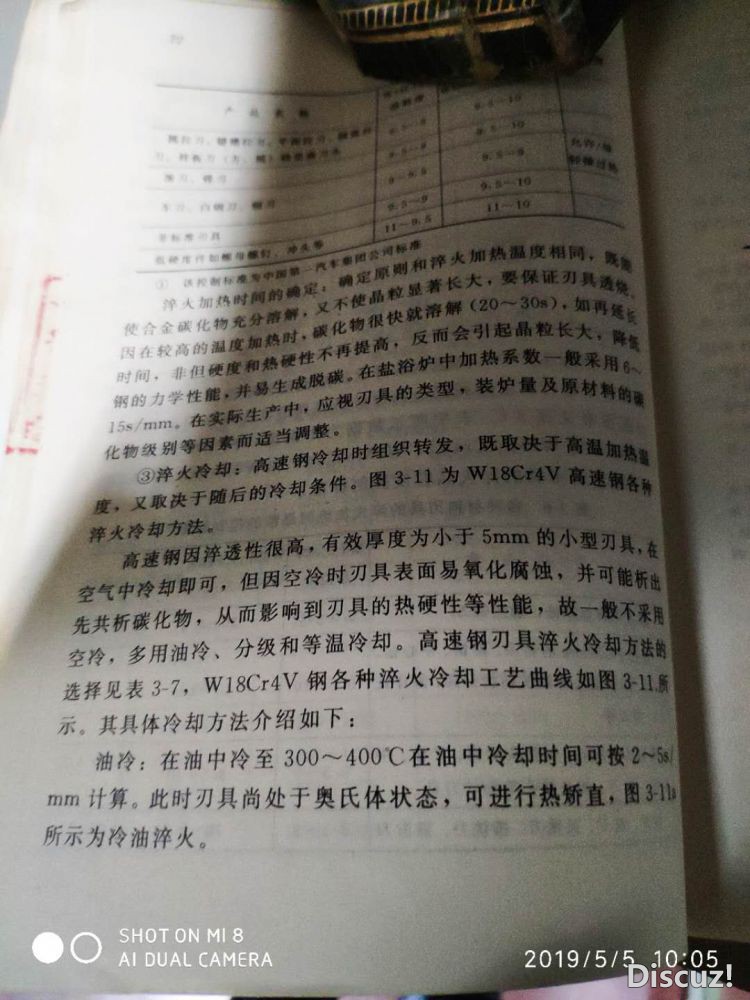 产品名称
9.5～10
9.5～10
9.5～9
9.5～9
9～9.5
9.5～10
车刀、白钢刀、铣刀
9.5～9
11～10
非标准刃具
11～9.5
低硬度件如螺母螺钉、冲头等
① 该控制标准为中国第一汽车集团公司标准
淬火加热时间的确定：确定原则和淬火加热温度相同，既能
使合金碳化物充分溶解，又不使晶粒显著长大，要保证刃具透烧。
因在较高的温度加热时，碳化物很快就溶解（20～30s），如再延长
时间，非但硬度和热硬性不再提高，反而会引起晶粒长大，降低
钢的力学性能，并易生成脱碳。在盐浴炉中加热系数一般采用6～
15s/mm。在实际生产中，应视刃具的类型，装炉量及原材料的碳
化物级别等因素而适当调整。
③淬火冷却：高速钢冷却时组织转发，既取决于高温加热温
度，又取决于随后的冷却条件。图 3-11 为 W18Cr4V 高速钢各种
淬火冷却方法。
高速钢因淬透性很高，有效厚度为小于 5mm 的小型刃具，在
空气中冷却即可，但因空冷时刃具表面易氧化腐蚀，并可能析出
先共析碳化物，从而影响到刃具的热硬性等性能，故一般不采用
空冷，多用油冷、分级和等温冷却。高速钢刃具淬火冷却方法的
选择见表 3-7，W18Cr4V 钢各种淬火冷却工艺曲线如图 3-11 所
示。其具体冷却方法介绍如下：
油冷：在油中冷至 300～400℃在油中冷却时间可按 2～5s/
mm 计算。此时刃具尚处于奥氏体状态，可进行热矫直，图 3-11a
所示为冷油淬火。
SHOT ON MI 8
AI DUAL CAMERA
2019/5/5 10:05
Discuz!